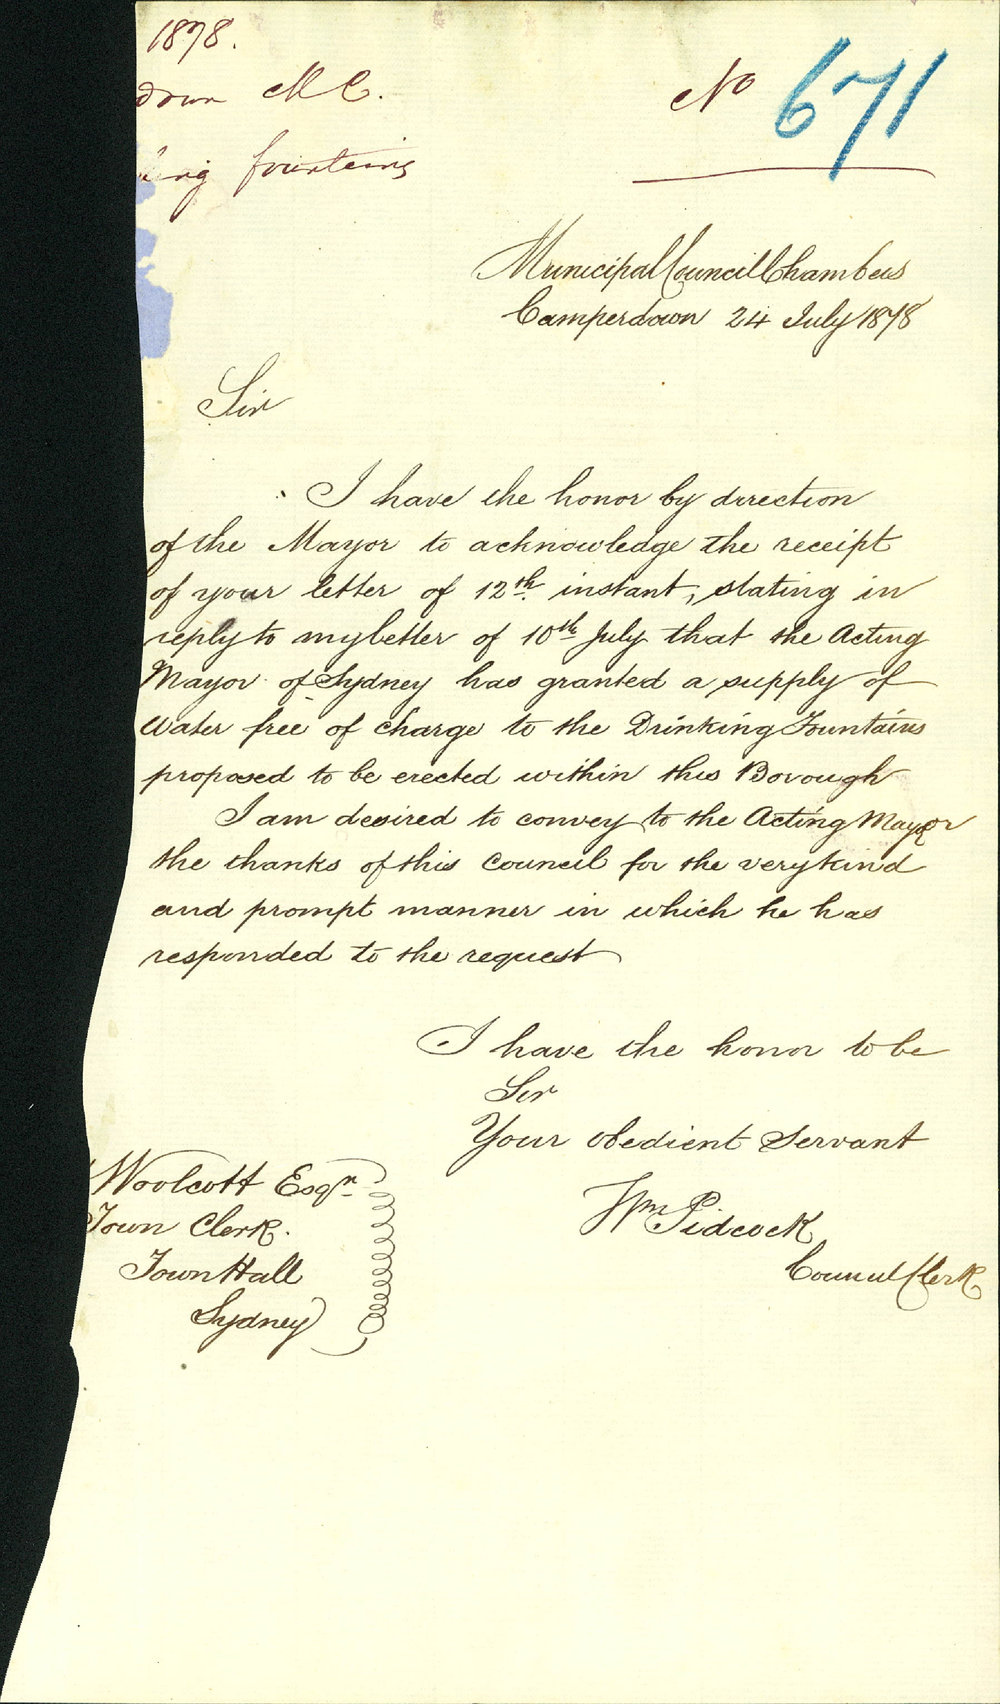 1878.
down M C.
ing fountains
No 671
Municipal Council Chambers
Camperdown 24 July 1878
Sir
I have the honor by direction
of the Mayor to acknowledge the receipt
of your letter of 12th. instant, stating in
reply to my letter of 10th July that the Acting
Mayor of Sydney has granted a supply of
Water free of charge to the Drinking Fountains
proposed to be erected within this Borough
I am desired to convey to the Acting Mayor
the thanks of this Council for the very kind
and prompt manner in which he has
responded to the request
I have the honor to be
Sir
Your obedient Servant
Wm Pidcock
Council Clerk
Woolcott Esqr
Town Clerk.
Town Hall
Sydney